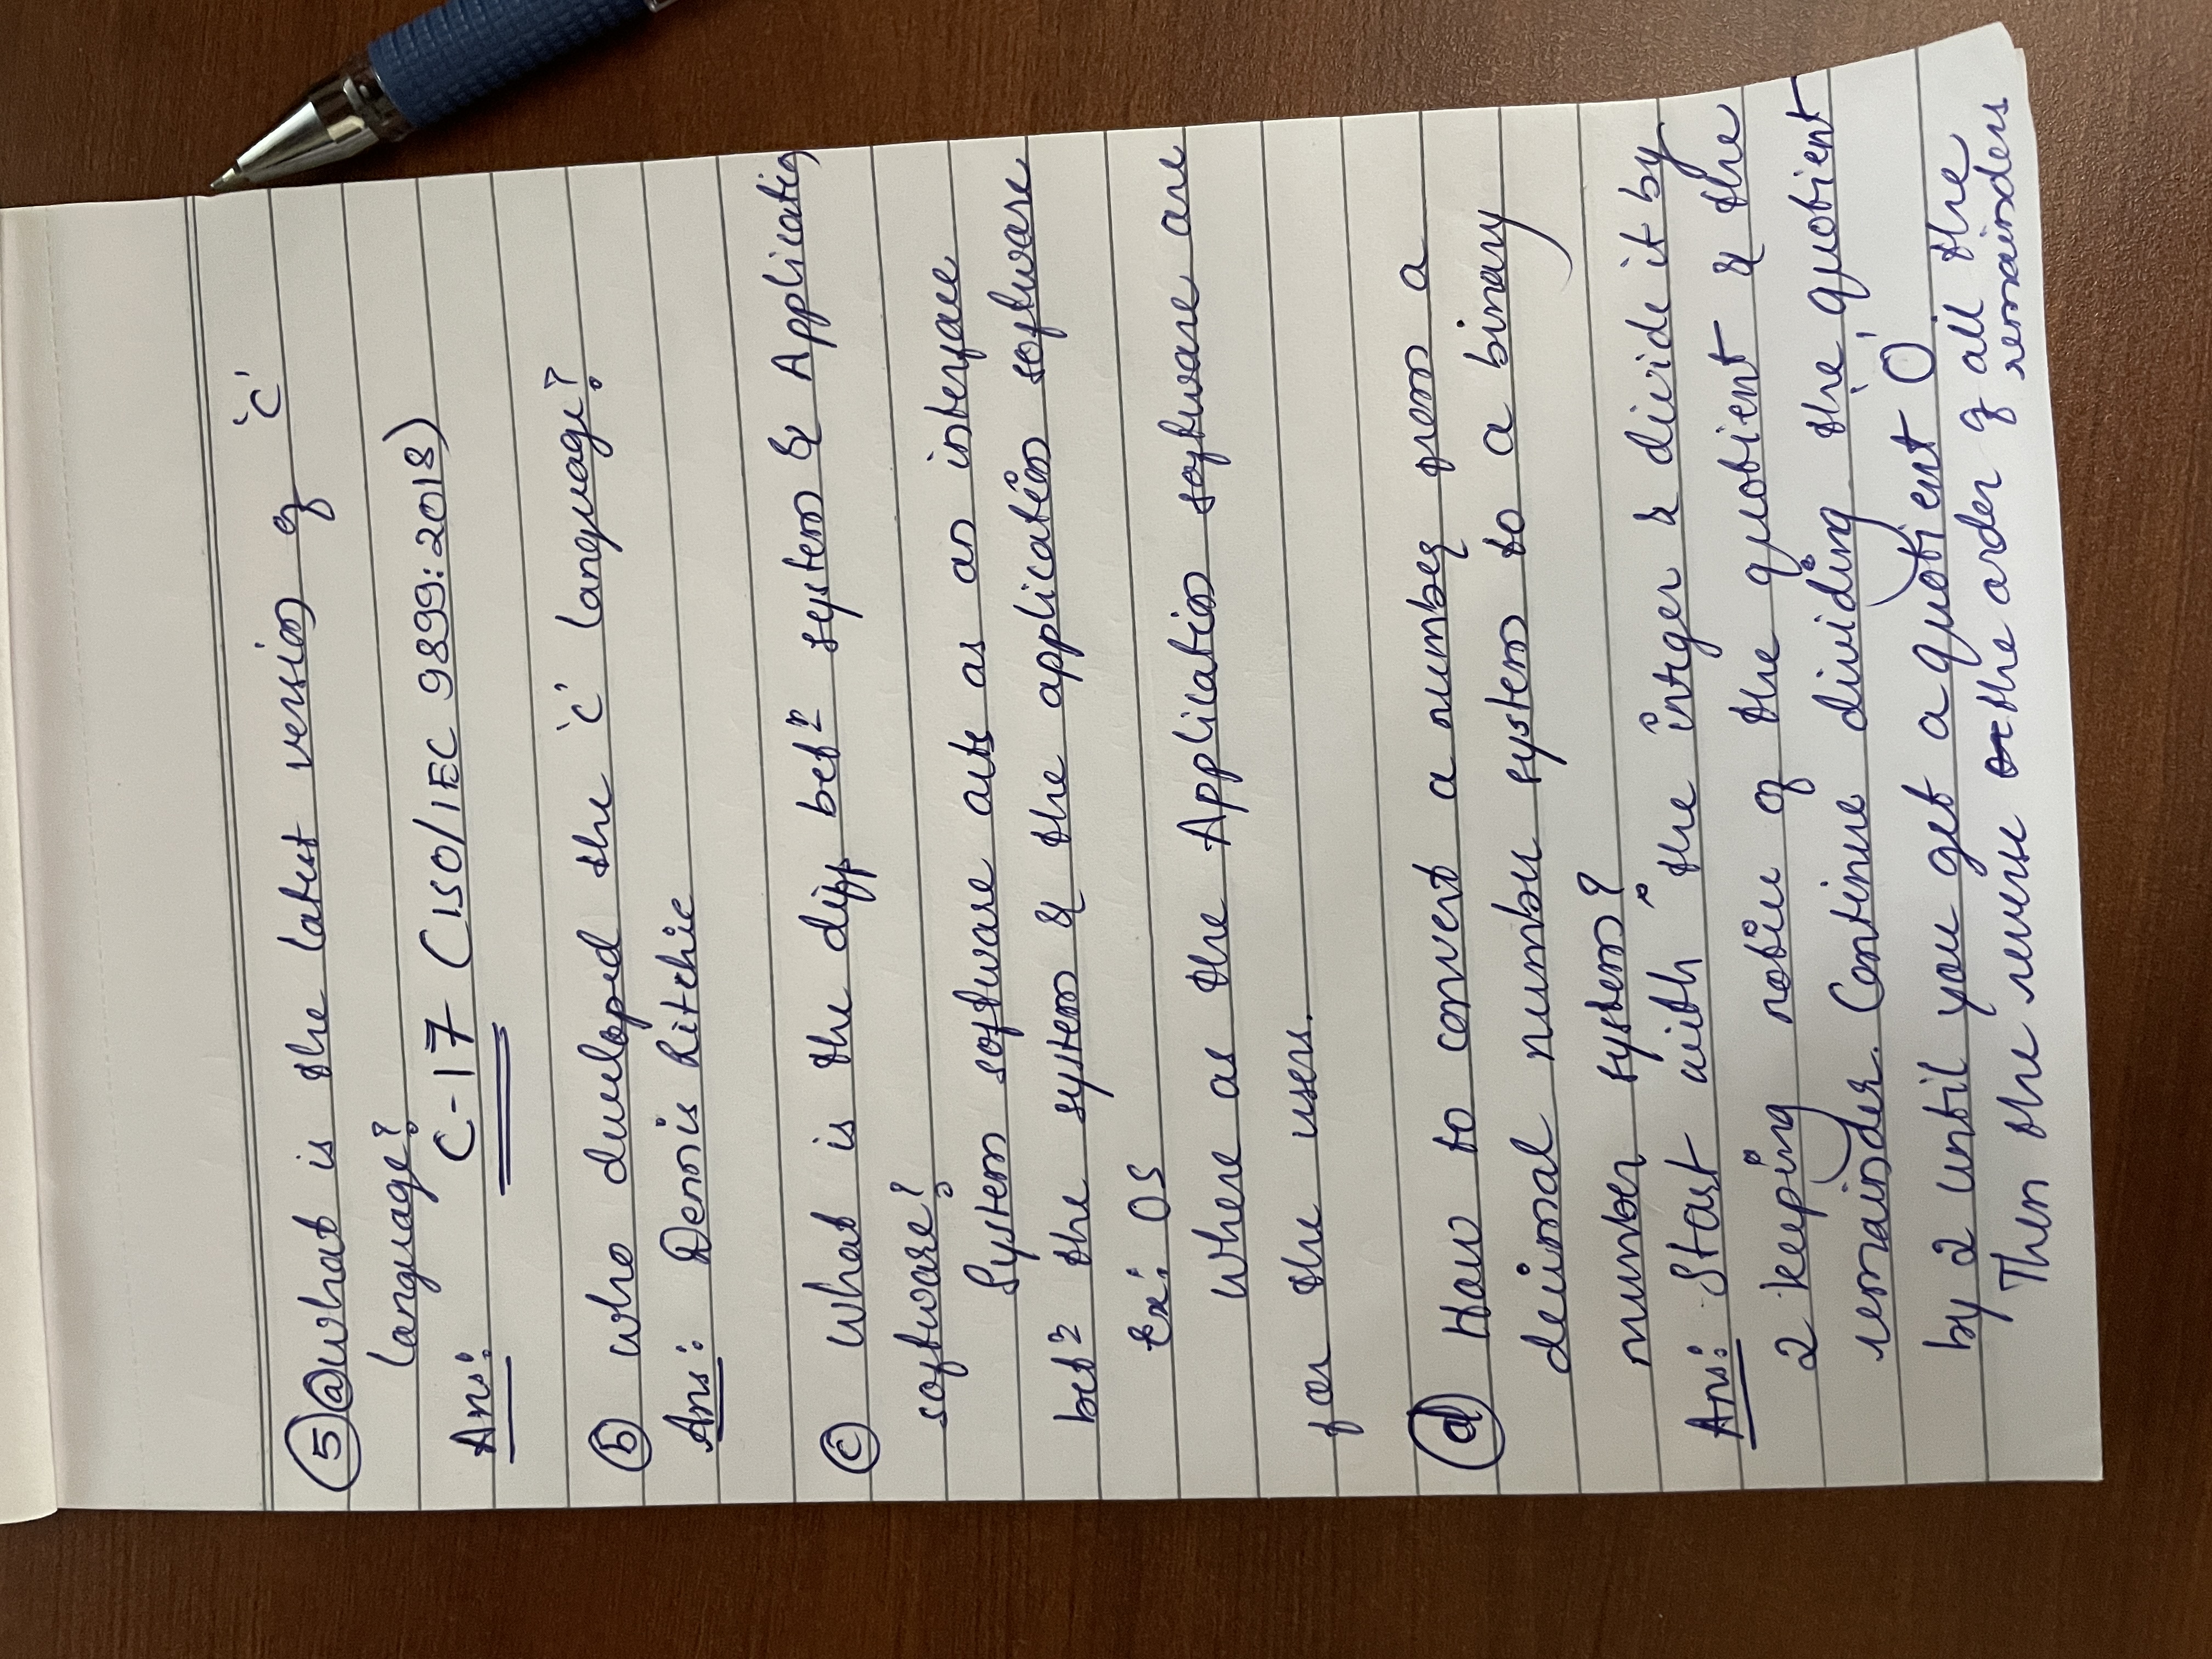 5 a What is the latest version of 'C'
language?
Ans: C-17 (ISO/IEC 9899:2018)
b Who developed the 'C' language?
Ans: Dennis Ritchie
c What is the diff betn system & Application
software?
System software acts as an interface
betn the system & the application software
Ex: OS
Where as the Application software are
for the users.
d How to convert a number from a
decimal number system to a binary
number system?
Ans: Start with the integer & divide it by
2 keeping notice of the quotient & the
remainder. Continue dividing the quotient
by 2 until you get a quotient '0'.
Then the reverse the order of all the
remainders